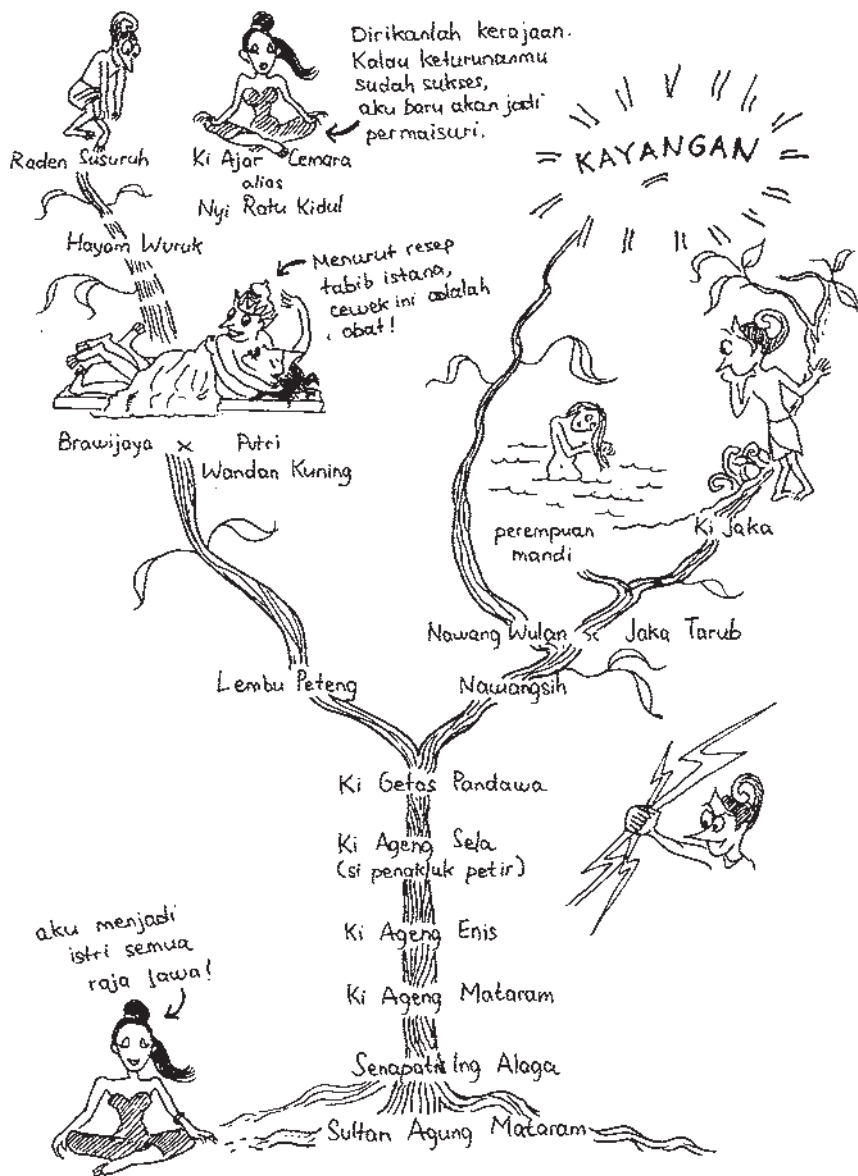 Dirikanlah kerajaan.
Kalau keturunanmu
sudah sukses,
aku baru akan jadi
permaisuri.
Raden Susuruh
Ki Ajar Cemara
alias
Nyi Ratu Kidul
KAYANGAN
Hayam Wuruk
Menurut resep
tabib istana,
cewek ini adalah
obat!
Brawijaya × Putri
Wandan Kuning
perempuan
mandi
Ki Jaka
Nawang Wulan × Jaka Tarub
Lembu Peteng
Nawangsih
Ki Getas Pandawa
Ki Ageng Sela
(si penakluk petir)
Ki Ageng Enis
Ki Ageng Mataram
Senapati Ing Alaga
Sultan Agung Mataram
aku menjadi
istri semua
raja Jawa!